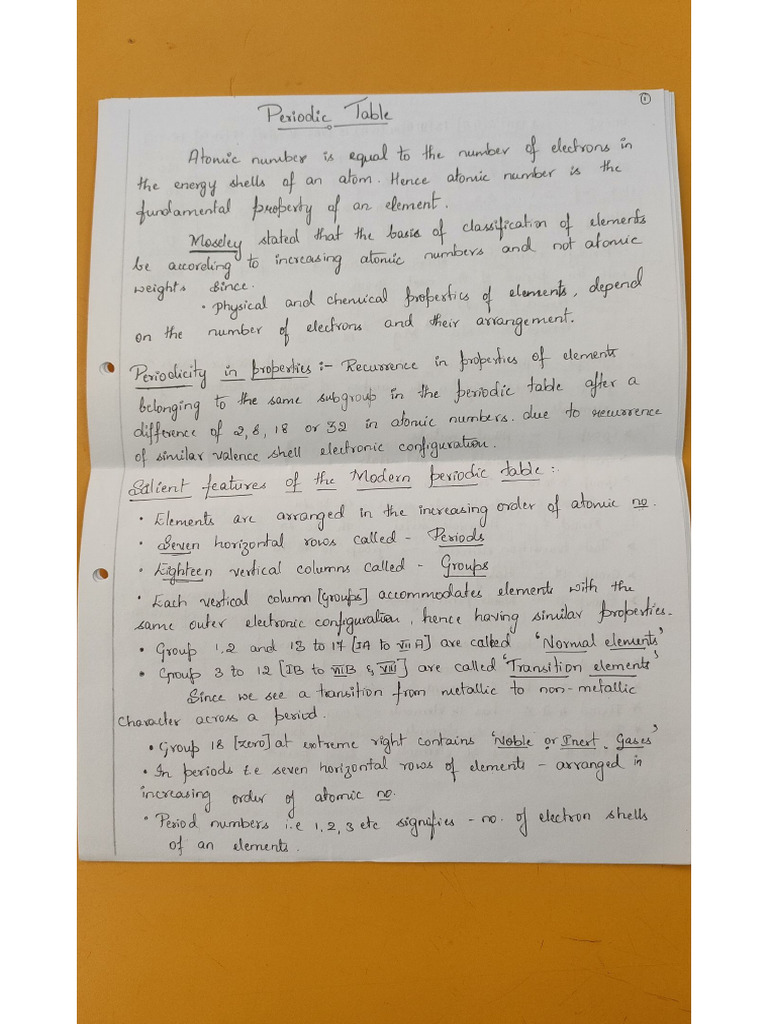 ①
Periodic Table
Atomic number is equal to the number of electrons in
the energy shells of an atom. Hence atomic number is the
fundamental property of an element.
Moseley stated that the basis of classification of elements
be according to increasing atomic numbers and not atomic
weights since.
• Physical and chemical properties of elements, depend
on the number of electrons and their arrangement.
Periodicity in properties :- Recurrence in properties of elements
belonging to the same subgroup in the periodic table after a
difference of 2, 8, 18 or 32 in atomic numbers. due to recurrence
of similar valence shell electronic configuration.
Salient features of the Modern periodic table :.
• Elements are arranged in the increasing order of atomic no.
• Seven horizontal rows called - Periods
• Eighteen vertical columns called - Groups
• Each vertical column [groups] accommodates elements with the
same outer electronic configuration, hence having similar properties.
• Group 1, 2 and 13 to 17 [IA to VIIA] are called 'Normal elements'
• Group 3 to 12 [IB to VIIB & VIII] are called 'Transition elements'
Since we see a transition from metallic to non-metallic
character across a period.
• Group 18 [zero] at extreme right contains 'Noble or Inert Gases'
• In periods i.e seven horizontal rows of elements - arranged in
increasing order of atomic no.
• Period numbers i.e 1, 2, 3 etc signifies - no. of electron shells
of an elements.